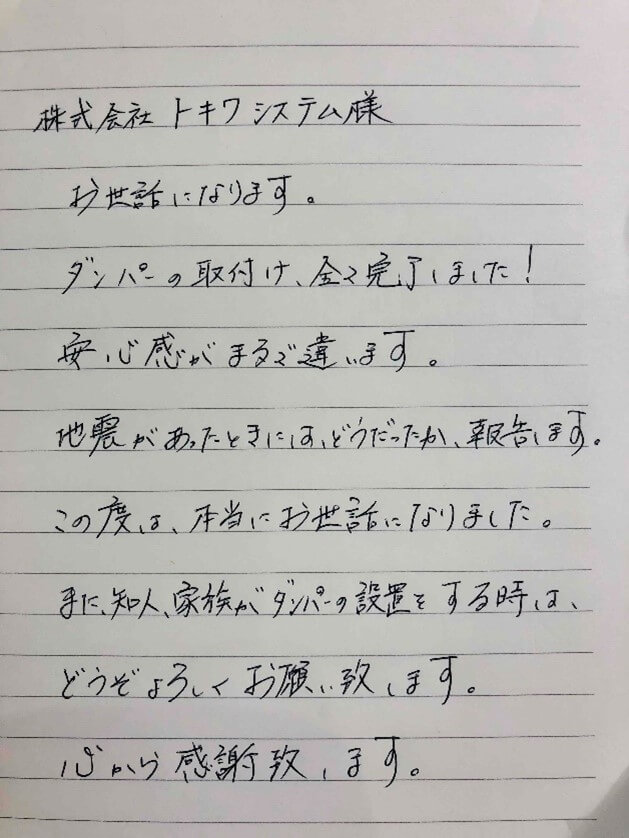 株式会社トキワシステム様
お世話になります。
ダンパーの取付け、全て完了しました!
安心感がまるで違います。
地震があったときには、どうだったか、報告します。
この度は、本当にお世話になりました。
また、知人、家族がダンパーの設置をする時は、
どうぞよろしくお願い致します。
心から感謝致します。